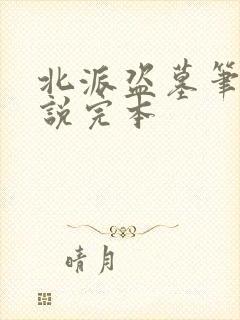 北派盗墓筆
説完本
晴月